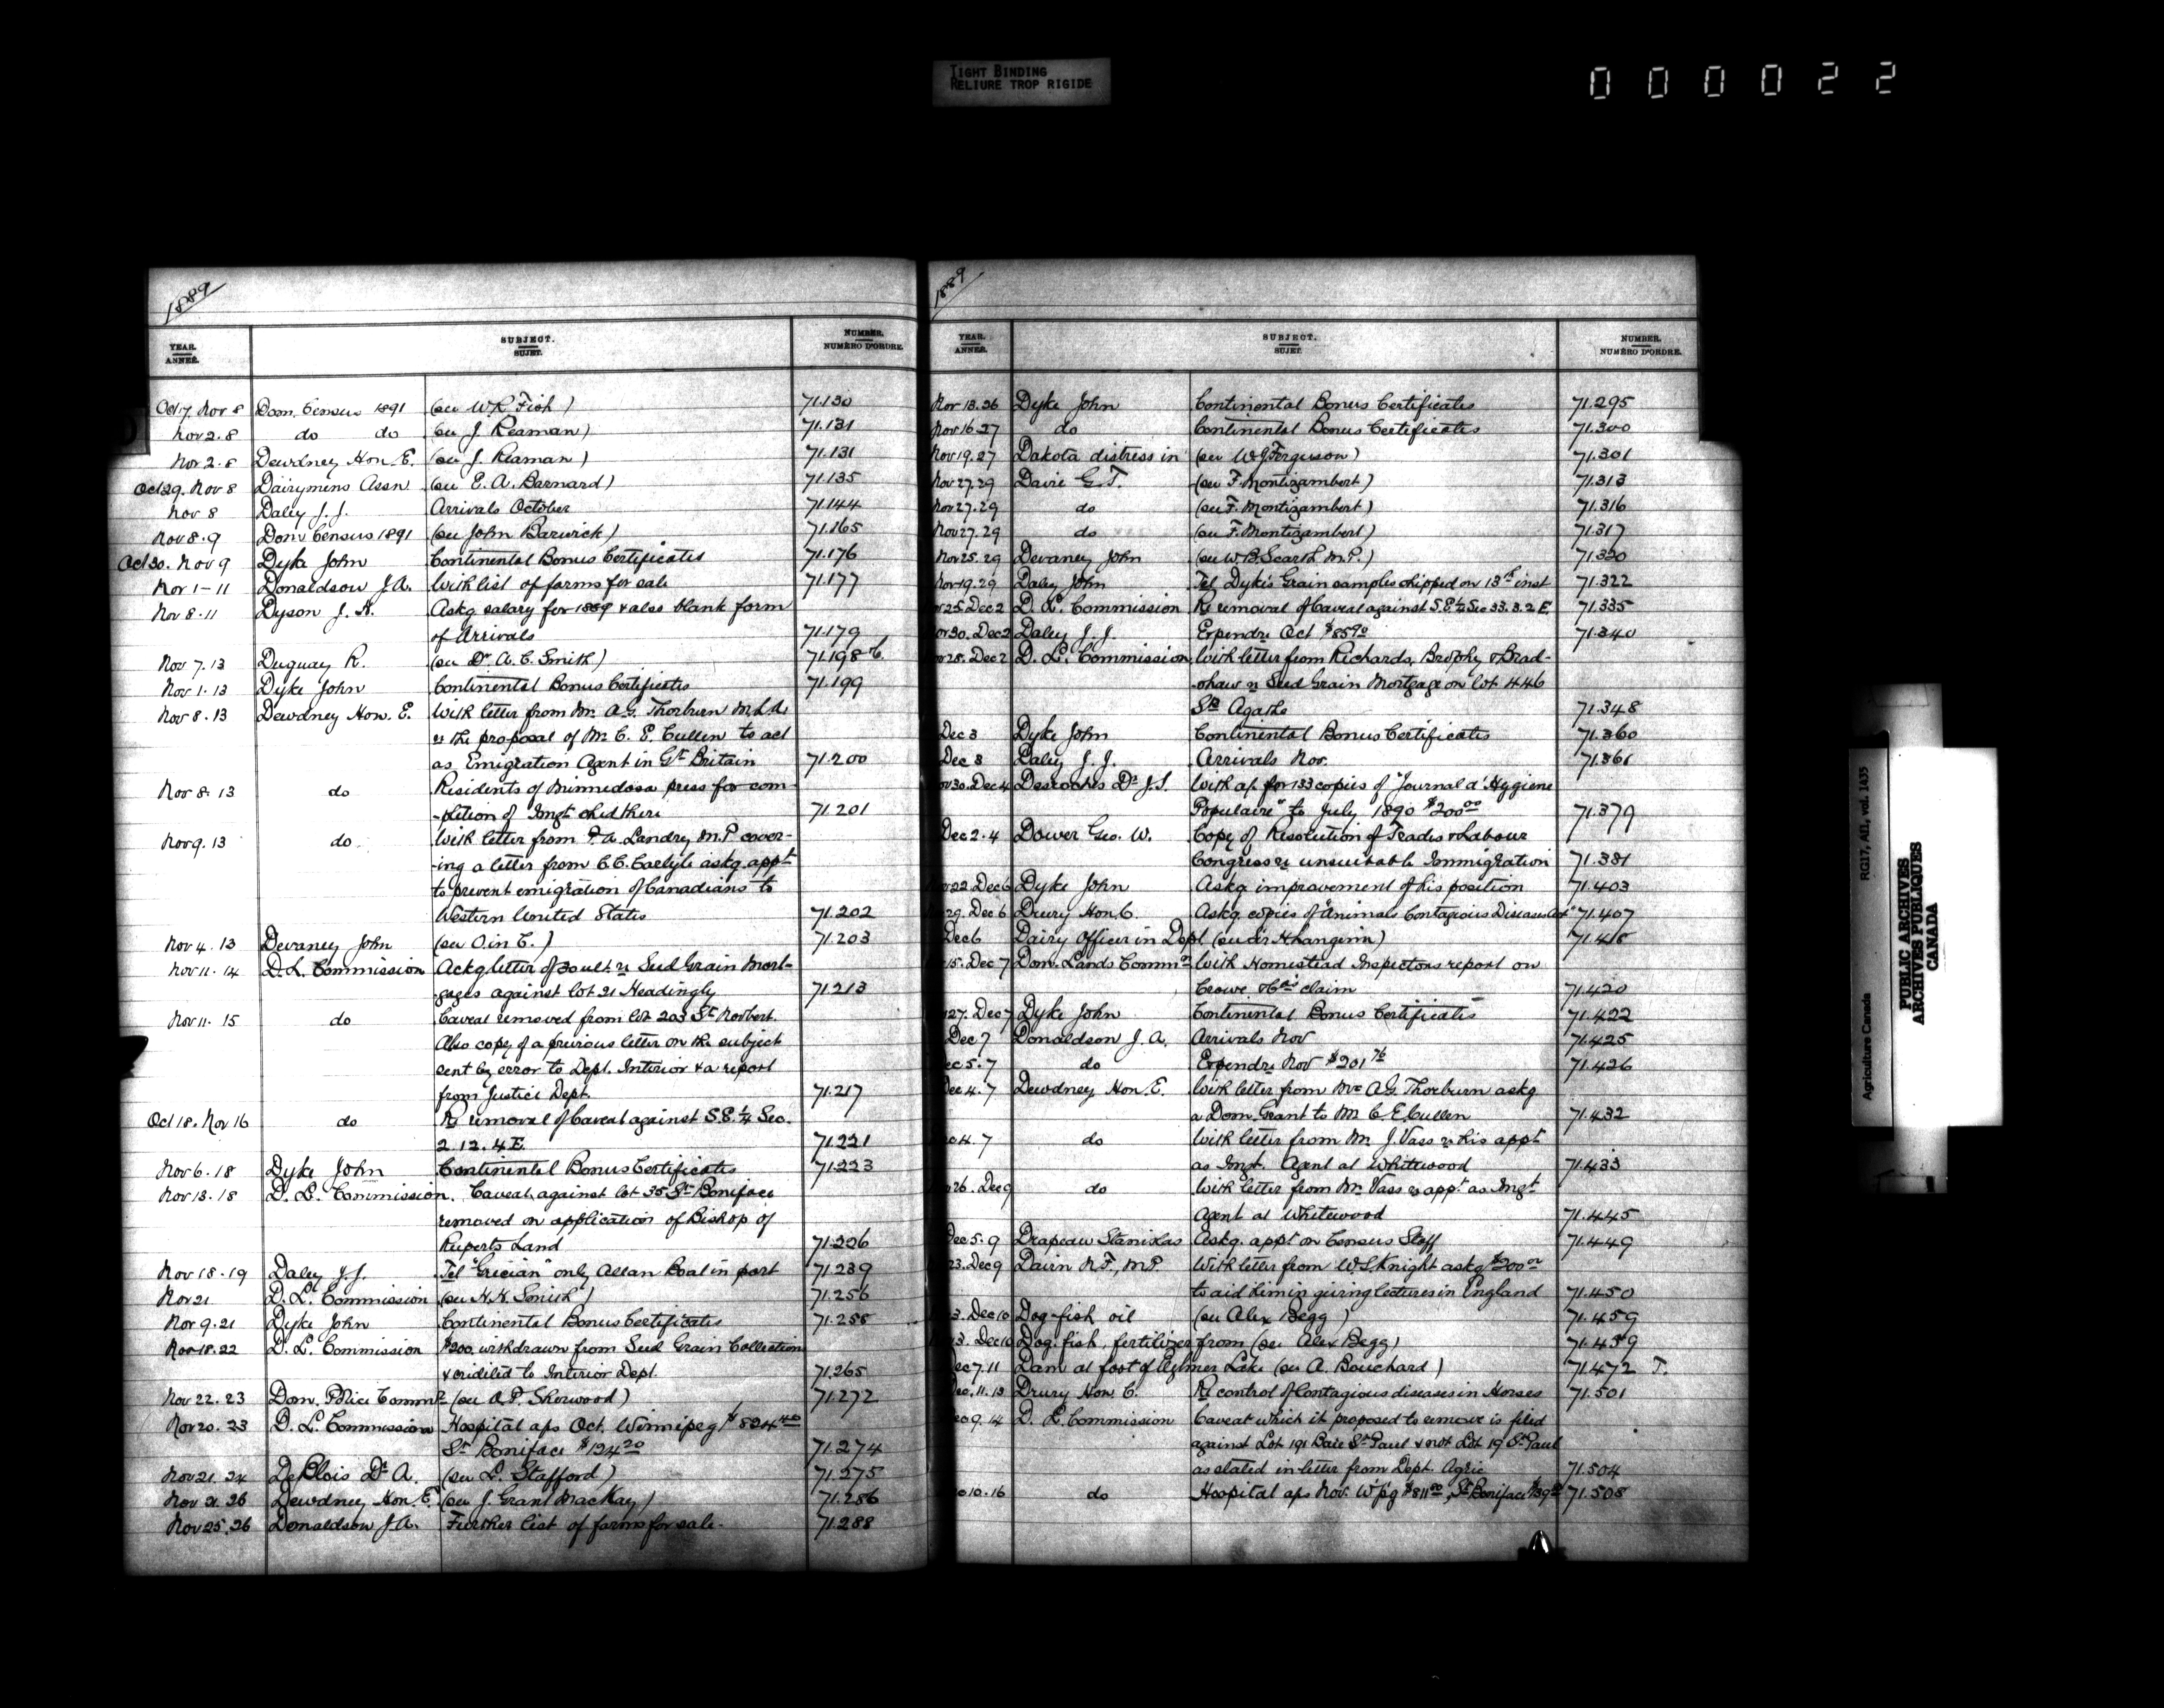 TIGHT BINDING
RELIURE TROP RIGIDE
000022
1889
YEAR. ANNÉE. SUBJECT. SUJET. NUMBER. NUMÉRO D'ORDRE.
Oct 7. Nov 8 Dom. Census 1891 (see W.R. Fish) 71.130
Nov 2.8 do do (see J. Reaman) 71.131
Nov 2.8 Dewdney Hon. E. (see J. Reaman) 71.131
Oct 29. Nov 8 Dairymens Assn (see E. A. Barnard) 71.135
Nov 8 Daley J. J. Arrivals October 71.144
Nov 8.9 Dom Census 1891 (see John Barwick) 71.165
Oct 30. Nov 9 Dyke John Continental Bonus Certificates 71.176
Nov 1-11 Donaldson J.A. With list of farms for sale 71.177
Nov 8.11 Dyson J. H. Askg salary for 1889 & also blank form
of Arrivals 71.179
Nov 7.13 Duguay R. (see Dr. A. C. Smith) 71.198
Nov 1.13 Dyke John Continental Bonus Certificates 71.199
Nov 8.13 Dewdney Hon. E. With letter from Mr. A.G. Thorburn M.L.A.
re the proposal of Mr C. E. Cullen to act
as Emigration Agent in Gt Britain 71.200
Nov 8.13 do Residents of Minnedosa press for com-
-pletion of Imgt shed there 71.201
Nov 9.13 do With letter from P. A. Landry M.P. cover-
-ing a letter from C.C. Carlyle askg. appt
to prevent emigration of Canadians to
Western United States 71.202
Nov 4.13 Devaney John (see O. in C.) 71.203
Nov 11.14 D.L. Commission Ackg letter of 30 ult. re Seed Grain Mort-
gages against lot 21 Headingly 71.213
Nov 11.15 do Caveat removed from lot 203 St Norbert.
Also copy of a previous letter on the subject
sent by error to Dept. Interior & a report
from Justice Dept. 71.217
Oct 18. Nov 16 do Re removal of Caveat against S.E. 1/4 Sec.
2.12.4 E. 71.221
Nov 6.18 Dyke John Continental Bonus Certificates 71.223
Nov 13.18 D. L. Commission. Caveat against lot 35 St Boniface
removed on application of Bishop of
Ruperts Land 71.226
Nov 18.19 Daley J.J. Tel "Grecian" only Allan Boat in port 71.239
Nov 21 D. L. Commission (see H.H. Smith) 71.256
Nov 9.21 Dyke John Continental Bonus Certificates 71.258
Nov 18.22 D. L. Commission $200 withdrawn from Seed Grain Collection
& credited to Interior Dept. 71.265
Nov 22.23 Dom. Police Commr (see A.P. Sherwood) 71.272
Nov 20.23 D. L. Commission Hospital a/cs Oct. Winnipeg $824.40
St Boniface $124.20 71.274
Nov 21.24 DeBlois Dr A. (see L. Stafford) 71.275
Nov 21.26 Dewdney Hon E. (see J. Grant MacKay) 71.286
Nov 25.26 Donaldson J.A. Further list of farms for sale. 71.288
1889
YEAR. ANNÉE. SUBJECT. SUJET. NUMBER. NUMÉRO D'ORDRE.
Nov 13.26 Dyke John Continental Bonus Certificates 71.295
Nov 16.27 do Continental Bonus Certificates 71.300
Nov 19.27 Dakota distress in (see W. J. Ferguson) 71.301
Nov 27.29 Davie G. T. (see F. Montizambert) 71.313
Nov 27.29 do (see F. Montizambert) 71.316
Nov 27.29 do (see F. Montizambert) 71.317
Nov 25.29 Devaney John (see W.B. Scarth M.P.) 71.320
Nov 19.29 Daley John Tel Dyke's Grain samples shipped on 13th inst 71.322
25. Dec 2 D. L. Commission Re removal of Caveat against S.E. 1/4 Sec 33.3.2 E. 71.335
30. Dec 2 Daley J. J. Expendre Oct $85.90 71.340
28. Dec 2 D. L. Commission With letter from Richards, Brophy & Brad-
-shaw re Seed Grain Mortgage on lot 446
Ste Agathe 71.348
Dec 3 Dyke John Continental Bonus Certificates 71.360
Dec 3 Daley J. J. Arrivals Nov. 71.361
30. Dec 4 Desroches Dr J.I. With a/c for 133 copies of "Journal d'Hygiene
Populaire" to July 1890 $200.00 71.379
Dec 2.4 Dower Geo. W. Copy of Resolution of Trades & Labour
Congress re unsuitable Immigration 71.381
22. Dec 6 Dyke John Askg improvement of his position 71.403
29. Dec 6 Drury Hon. C. Askg. copies of "Animals Contagious Diseases Act" 71.407
Dec 6 Dairy Officer in Dept (see Sir H. Langevin) 71.418
15. Dec 7 Dom. Lands Commn With Homestead Inspectors report on
Crowe & Co's claim 71.420
27. Dec 7 Dyke John Continental Bonus Certificates 71.422
Dec 7 Donaldson J. A. Arrivals Nov 71.425
Dec 5.7 do Expendre Nov $201.76 71.426
Dec 4.7 Dewdney Hon. E. With letter from Mr A.G. Thorburn askg
a Dom. Grant to Mr C. E. Cullen 71.432
4.7 do With letter from Mr J. Vass re his appt
as Imgt. Agent at Whitewood 71.433
26. Dec 9 do With letter from Mr. Vass re appt as Imgt
Agent at Whitewood 71.445
Dec 5.9 Drapeau Stanislas Askg. appt on Census Staff 71.449
23. Dec 9 Davin N.F., M.P. With letter from W.S. Knight askg $200.00
to aid him in giving lectures in England 71.450
3. Dec 10 Dog-fish oil (see Alex Begg) 71.459
3. Dec 10 Dog-fish, fertilizer from (see Alex Begg) 71.459
Dec 7.11 Dam at foot of Aylmer Lake (see A. Bouchard) 71.472 T.
Dec. 11.13 Drury Hon C. Re control of Contagious diseases in Horses 71.501
9.14 D. L. Commission Caveat which it proposed to remove is filed
against Lot 191 Baie St Paul & not Lot 19 St Paul
as stated in letter from Dept. Agric 71.504
10.16 do Hospital a/cs Nov. W'p'g $811.80, St Boniface 71.508
Agriculture Canada RG17, AII, vol. 1435
PUBLIC ARCHIVES
ARCHIVES PUBLIQUES
CANADA